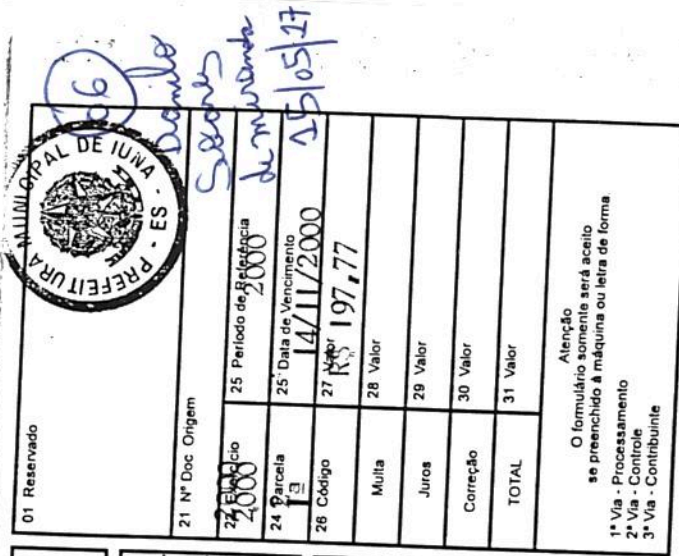 01 Reservado
PREFEITURA MUNICIPAL DE IUNA - ES
06
Danilo
Soares
de miranda
15/05/17
21 Nº Doc Origem
22 Exercício
2000
25 Período de Referência
2000
24 Parcela
1ª
25 Data de Vencimento
14/11/2000
26 Código
27 Valor
R$ 197,77
Multa
28 Valor
Juros
29 Valor
Correção
30 Valor
TOTAL
31 Valor
Atenção
O formulário somente será aceito
se preenchido à máquina ou letra de forma.
1ª Via - Processamento
2ª Via - Controle
3ª Via - Contribuinte